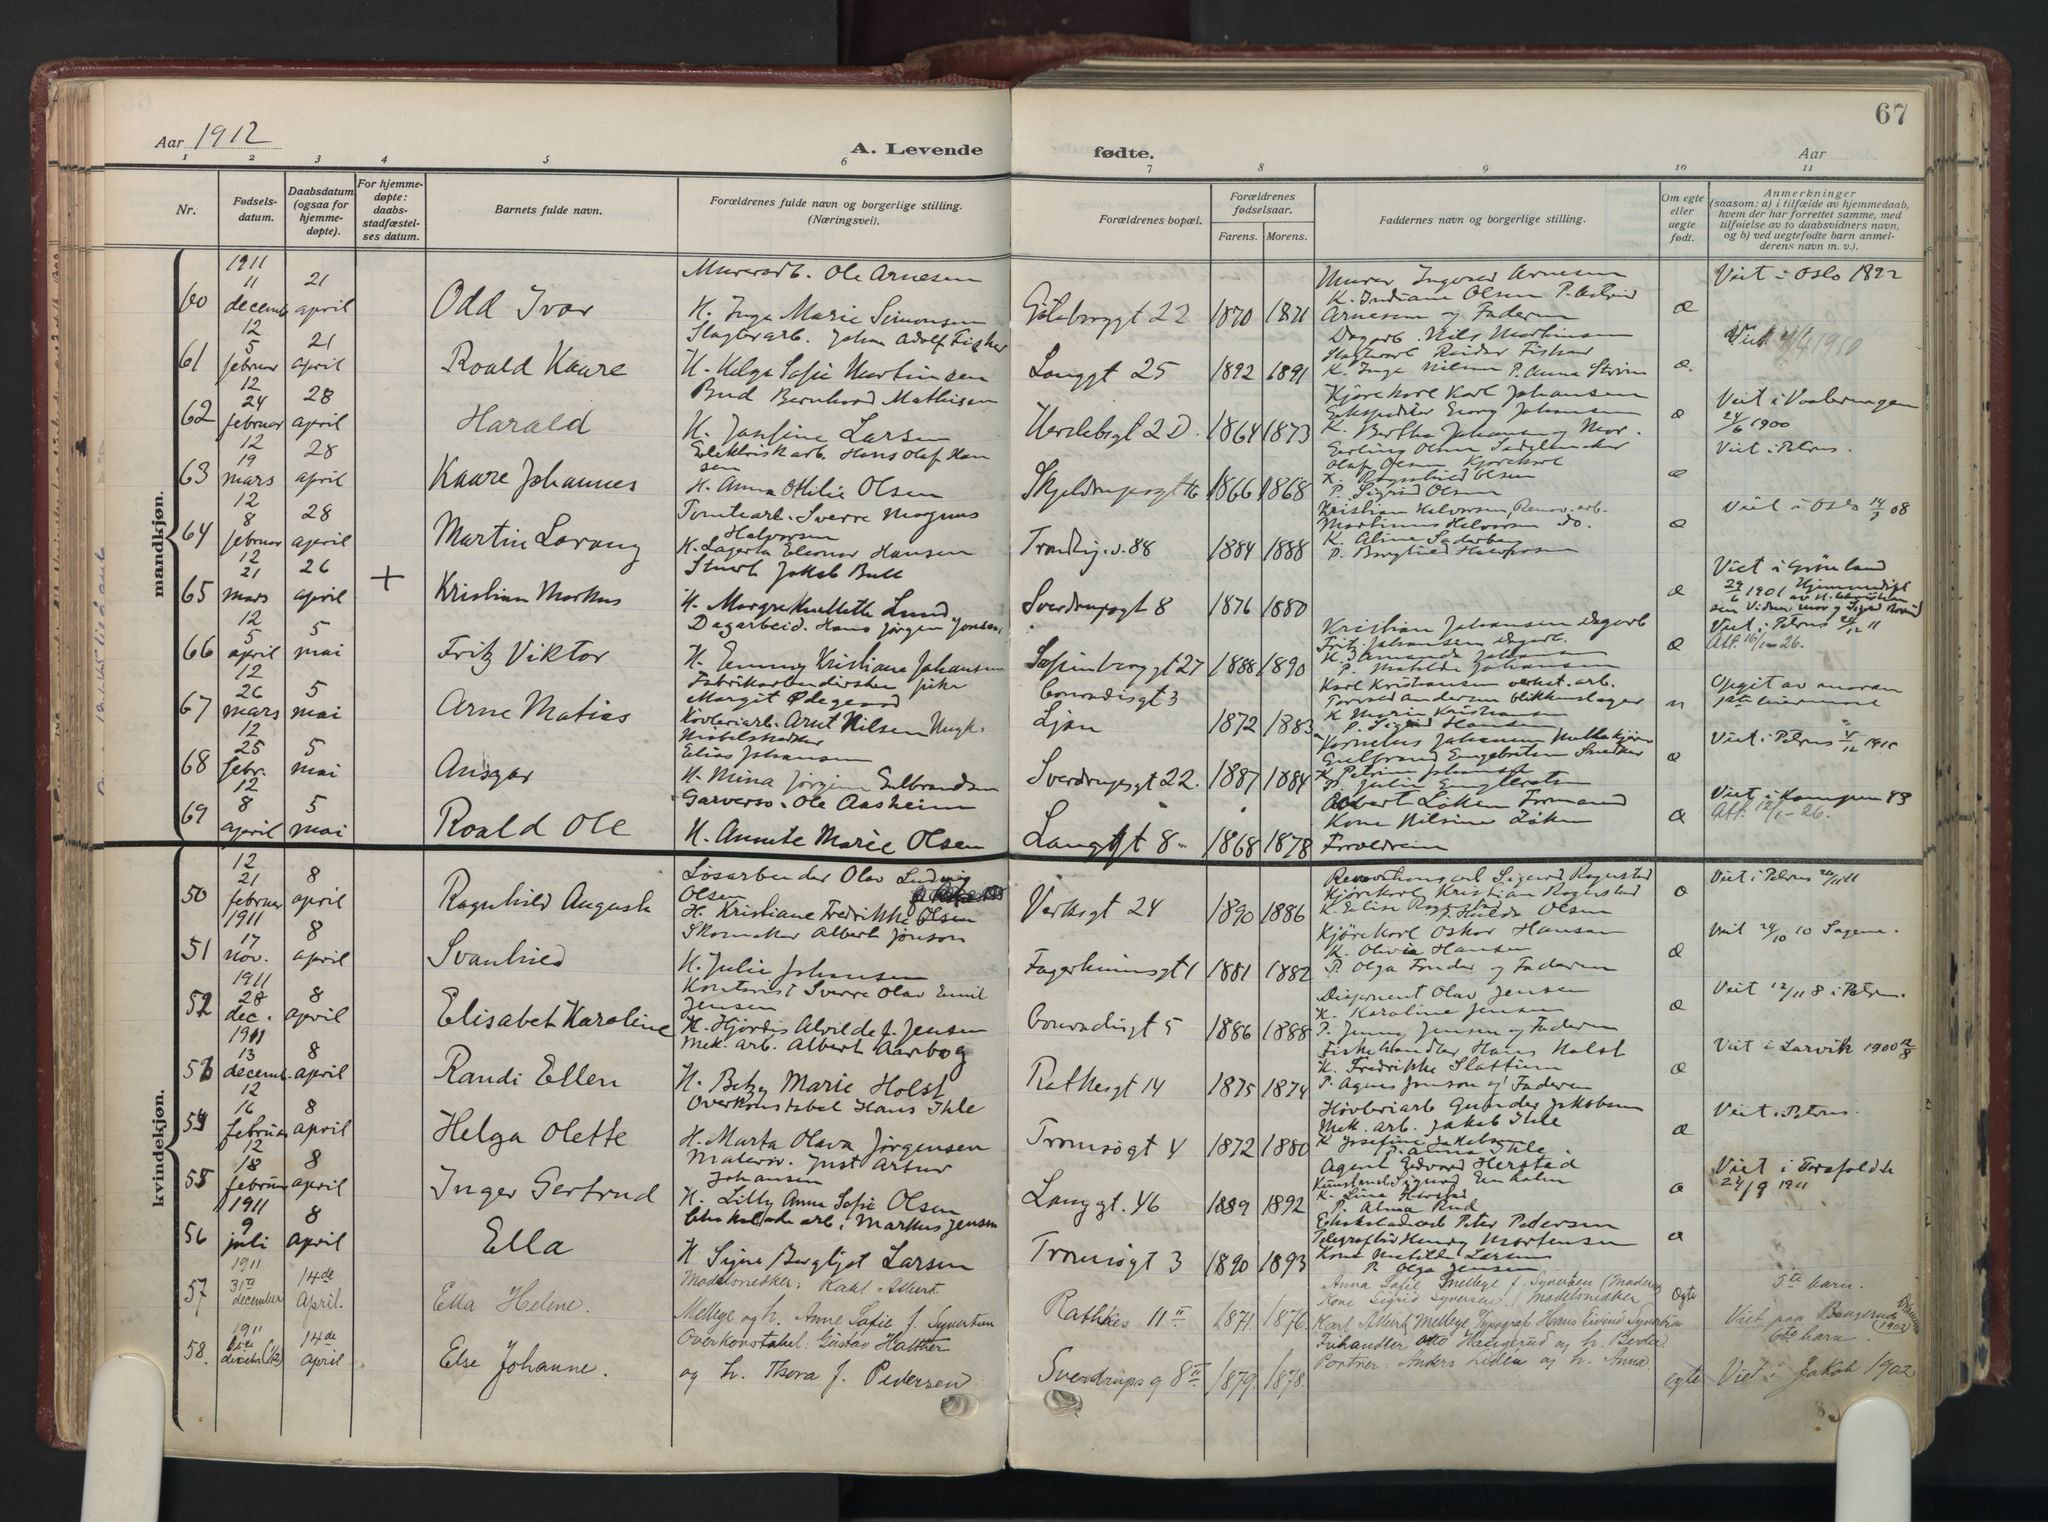 Aar 1912
A. Levende
1 2 3 4 5 6
Nr.
Fødsels-
datum.
Daabsdatum
(ogsaa for
hjemme-
døpte).
For hjemme-
døpte:
daabs-
stadfæstel-
ses datum.
Barnets fulde navn.
Forældrenes fulde navn og borgerlige stilling.
(Næringsvei).
mandkjøn.
1911
11 21 Murerarb. Ole Arnesen
60 decemb april Odd Ivar H. Inga Marie Simonsen
12
5 21 Slagterarb. Johan Adolf Fisher
61 februar april Roald Kaare H. Helga Sofie Martinsen
12
24 28 Bud Bernhard Mathisen
62 februar april Harald H. Josefine Larsen
12
19 28 Elektriskarb. Hans Olaf Han
sen
63 mars april Kaare Johannes H. Anna Othilie Olsen
12
8 28 Tomtearb. Sverre Magnus
Halvorsen
64 februar april Martin H. Lagerta Eleonor Hansen
12
21 26 Jakob Bull
65 mars april + Kristian Markus H. Lund
12
5 5 Dagarbeid. Hans Jørgen Jonsen
66 april mai Fritz Viktor H. Emmy Kristiane Johansen
12
26 5 Margit Ødegaard
67 mars mai Arne Matias Høvleriarb. Arnt Nilsen
12
25 5 Elias Johansen
68 febr. mai Ansgar H. Mina Jørgine Gulbrandsen
12
8 5 Garversv. Ole Aasheim
69 april mai Roald Ole H. Annete Marie Olsen
kvindekjøn.
12
21 8 Løsarbeider Olav Ludvig
Olsen
50 februar april Ragnhild Augusta H. Kristiane Fredrikke Olsen
1911
17 8 Skomaker Albert Jonson
51 nov. april Svanhild H. Julie Johansen
1911
28 8 Kontorist Sverre Olav Emil
Jensen
52 dec. april Elisabet Karoline H. Hjørdis Alvilde f. Jensen
1911
13 8 Mek. arb. Albert Aarbog
53 decemb. april Randi Ellen H. Betzy Marie Holst
12
16 8 Overkonstabel Hans Ihle
54 februar april Helga Olette H. Marta Olava Jørgensen
12
18 8 Malersv. Just Artur
Johansen
55 februar april Inger Gertrud H. Lilly Anna Sofie Olsen
1911
9 8 Chokoladearb. Markus Jensen
56 juli april Ella H Signe Bergljot Larsen
1911
31te 14de Modelsnedker: Karl Albert
57 december April. Ella Helene. Mellbye og h. Anne Sofie f. Syvertsen
1911
14de Overkonstabel: Gustav Halther
58. april Else Johanne. og h. Thora f. Pedersen
67
fødte.
Aar
7 8 9 10 11
Forældrenes bopæl.
Forældrenes
fødselsaar.
Farens. Morens.
Faddernes navn og borgerlige stilling.
Om egte
eller
uegte
født.
Anmerkninger
(saasom: a) i tilfælde av hjemmedaab,
hvem der har forrettet samme, med
tilføielse av to daabsvidners navn,
og b) ved uegtefødte barn anmel-
derens navn m. v.).
Murer Ingvald Arnesen Viet i Oslo 1892
K. Indiane Olsen P. Astrid
Gøteborggt 22 1870 1871 Arnesen og Faderen æ
Dagarb. Nils Martinsen
Slagterarb Reidar Fisher
Langgt 25 1892 1891 K. Inga Nilsen P. Anna Strøm æ.
Kjørekarl Karl Johansen Viet i Vaalerengen
Ekspeditør Georg Johansen 24/6 1900
Herslebsgt 2D. 1864 1873 K. Bertha Johansen og Mor. æ
Erling Olsen Sadelmaker Viet i Petrus.
Olaf Olsen Kjørekarl
Skjeldrupsgt 16 1866 1868 K. Ragnhild Olsen æ
P. Sigrid Olsen
Kristian Halvorsen, Renov. arb. Viet i Oslo 08
Martinus Halvorsen do.
Trondhj.v. 88 1884 1888 K. Aline Søderberg æ
P. Borghild Halvorsen
Viet i Grønland
Sverdrupsgt 8 1876 1880 æ 1901
Kristian Johansen dagarb Viet i Petrus
Fritz Johansen dagarb. Att. 16/1-26.
Sofienberggt 27 1888 1890 K. Amanda Johansen æ
P. Matilde Johansen
Conradisgt 3 Karl Kristiansen verkst. arb. Opgit av moren
Torvald Andersen blikkenslager
Ljan 1872 1883 K Marie Kristiansen u
P. Sigrid Hansen
Kornelius Johansen Viet i Petrus
Gulbrand Engebretsen Snekker
Sverdrupsgt 22. 1887 1884 K Petrine Johansen æ
P. Julie Engebretsen
Albert Løken Formand Viet i Kampen 03
Kone Nilsine Løken Att. 12/1-26.
Langgt 8 1868 1878 Forældrene æ
Renovationsarb Sigurd Rognstad Viet i Petrus
Kjørekarl Kristian Rognstad
Verksgt 24 1890 1886 K Elise Rognstad æ
P. Hulda Olsen
Kjørekarl Oskar Hansen Viet 24/10 10 Sagene.
K. Olivia Hansen
Fagerheimsgt 1 1881 1882 P. Olga Fonder og Faderen æ
Disponent Olav Jensen Viet 12/11 8 i Petrus.
K. Karoline Jensen
Conradisgt 5 1886 1888 P. Jenny Jensen og Faderen æ
Fiskehandler Hans Holst Viet i Larvik 1900
K. Fredrikke Slattum
Rathesgt 14 1875 1874 P. Agnes Jonson og Faderen æ
Høvleriarb Gunder Jakobsen Viet i Petrus.
Mek. arb. Jakob Ihle
Tromsøgt 4 1872 1880 K Josefine Jakobsen æ
P. Alma Ihle
Agent Edvard Herstad Viet i
24/9 1911
Langgt. 46 1889 1892 K. Lina Herstad æ
P. Alma Rud
Chokoladearb Peter Pedersen
Telegrafbud Henry Mortensen
Tromsøgt 3 1890 1893 Kone Matilde Larsen æ
P. Olga Jensen
Anna Sofie Mellbye f. Syvertsen (Moderen) 5te barn.
Kone Sigrid Syversen. / Modelsnedker
Rathkes 11 II 1871. 1876. Karl Albert Mellbye Typograf Hans Eivind Syvertsen egte Viet paa
Frihandler Otto Haugerud og h. 6te barn
Sverdrups g 8 II 1879. 1878. Portner: Anders Liden og h. Anna. egte Viet i Jakob 1902